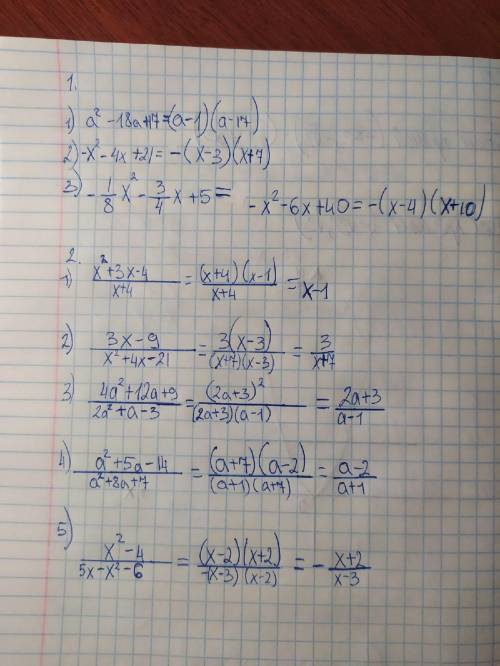 1.
1) a² - 18a+17=(a-1)(a-17)
2) -x² - 4x + 21 = -(x-3)(x+7)
3) -1/8 x² - 3/4 x + 5 = -x² - 6x + 40 = -(x-4)(x+10)
2.
1) x²+3x-4 / x+4 = (x+4)(x-1) / x+4 = x-1
2) 3x-9 / x²+4x-21 = 3(x-3) / (x+7)(x-3) = 3 / x+7
3) 4a²+12a+9 / 2a²+a-3 = (2a+3)² / (2a+3)(a-1) = 2a+3 / a-1
4) a²+5a-14 / a²+8a+7 = (a+7)(a-2) / (a+1)(a+7) = a-2 / a+1
5) x²-4 / 5x-x²-6 = (x-2)(x+2) / -(x-3)(x-2) = - x+2 / x-3